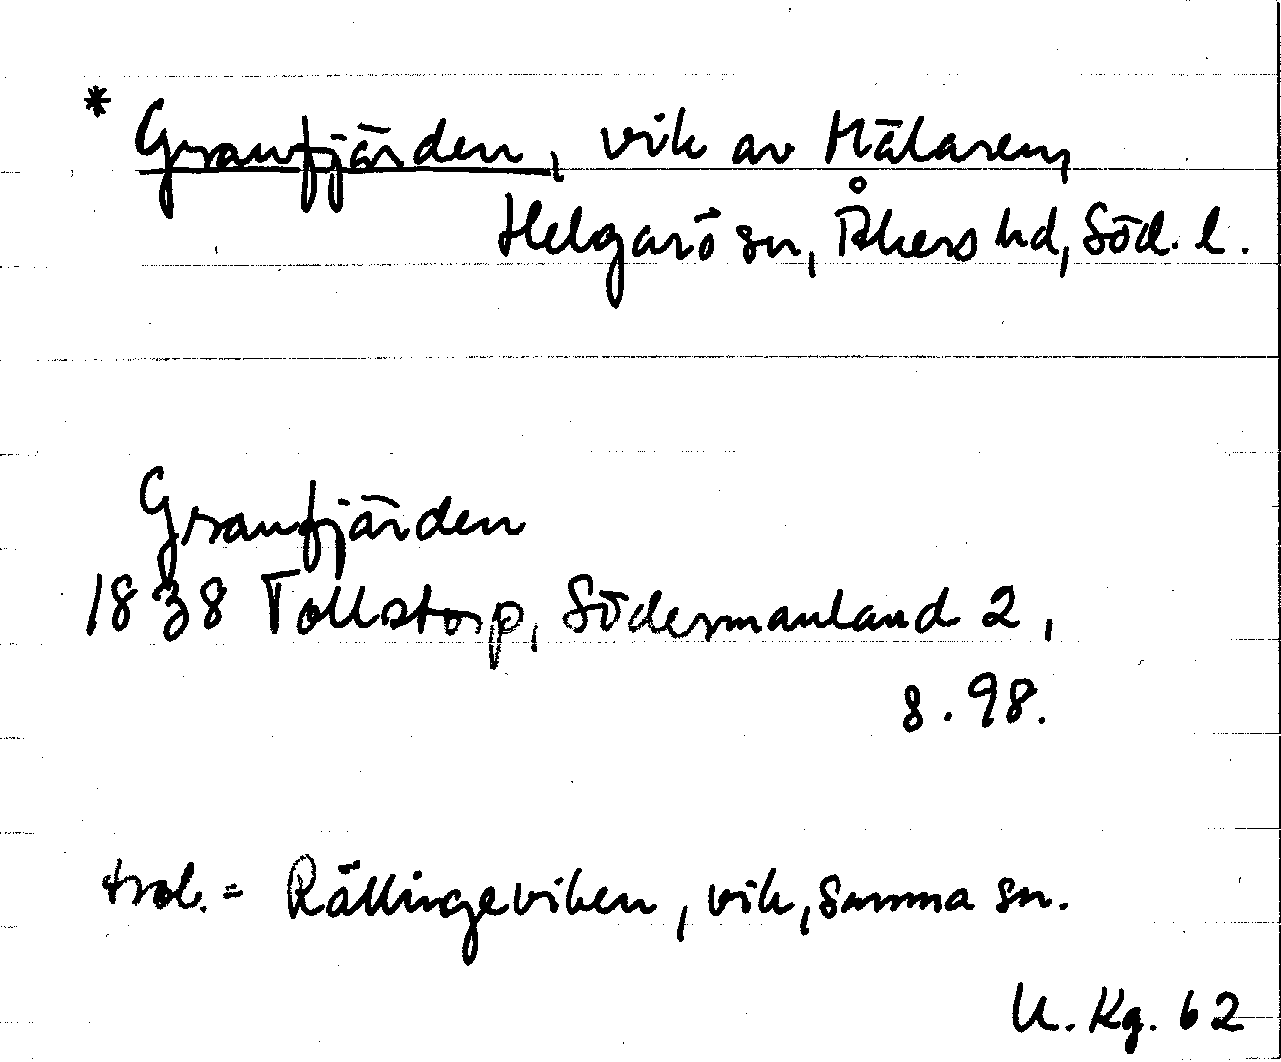 * Granfjärden, vik av Mälaren,
Helgarö sn, Åkers hd, Söd. l.
Granfjärden
1838 Tollstorp, Södermanland 2,
s. 98.
trol. = Rällingeviken, vik, samma sn.
U. Kg. 62